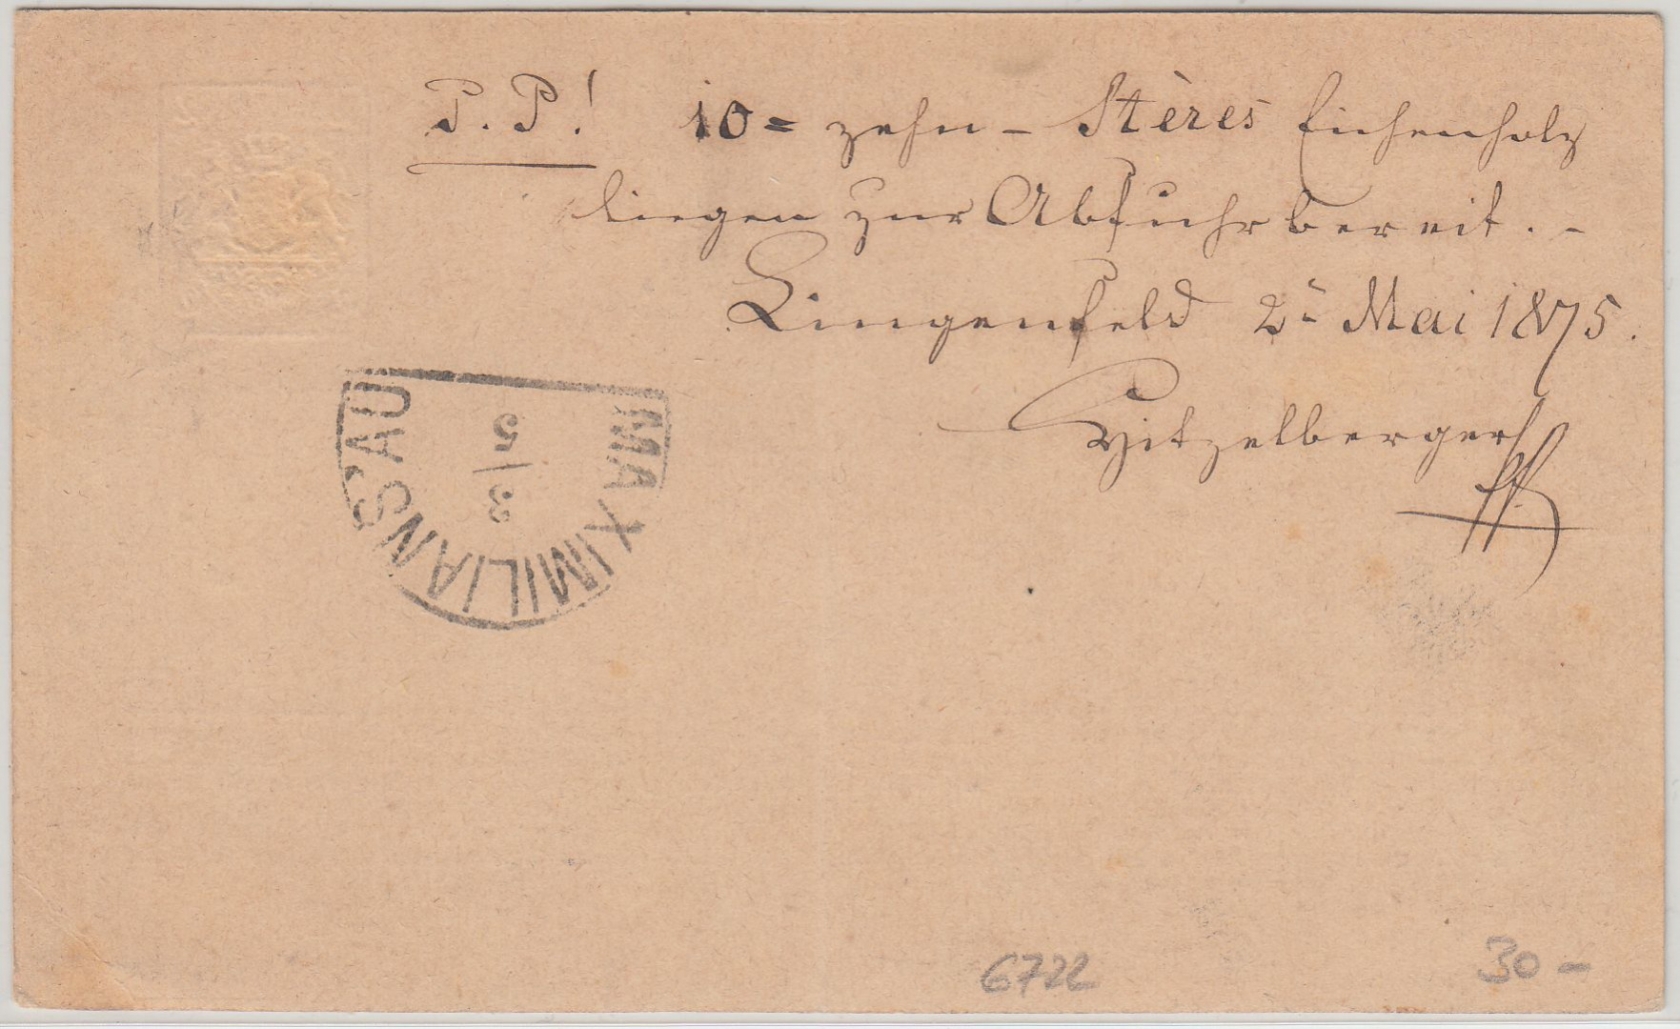 P. P! 10 = zehn - Stères Eichenholz
liegen zur Abfuhr bereit. -
Lingenfeld 2. Mai 1875.
Hitzelberger
MAXIMILIANSAU
3/5
6722
30 -